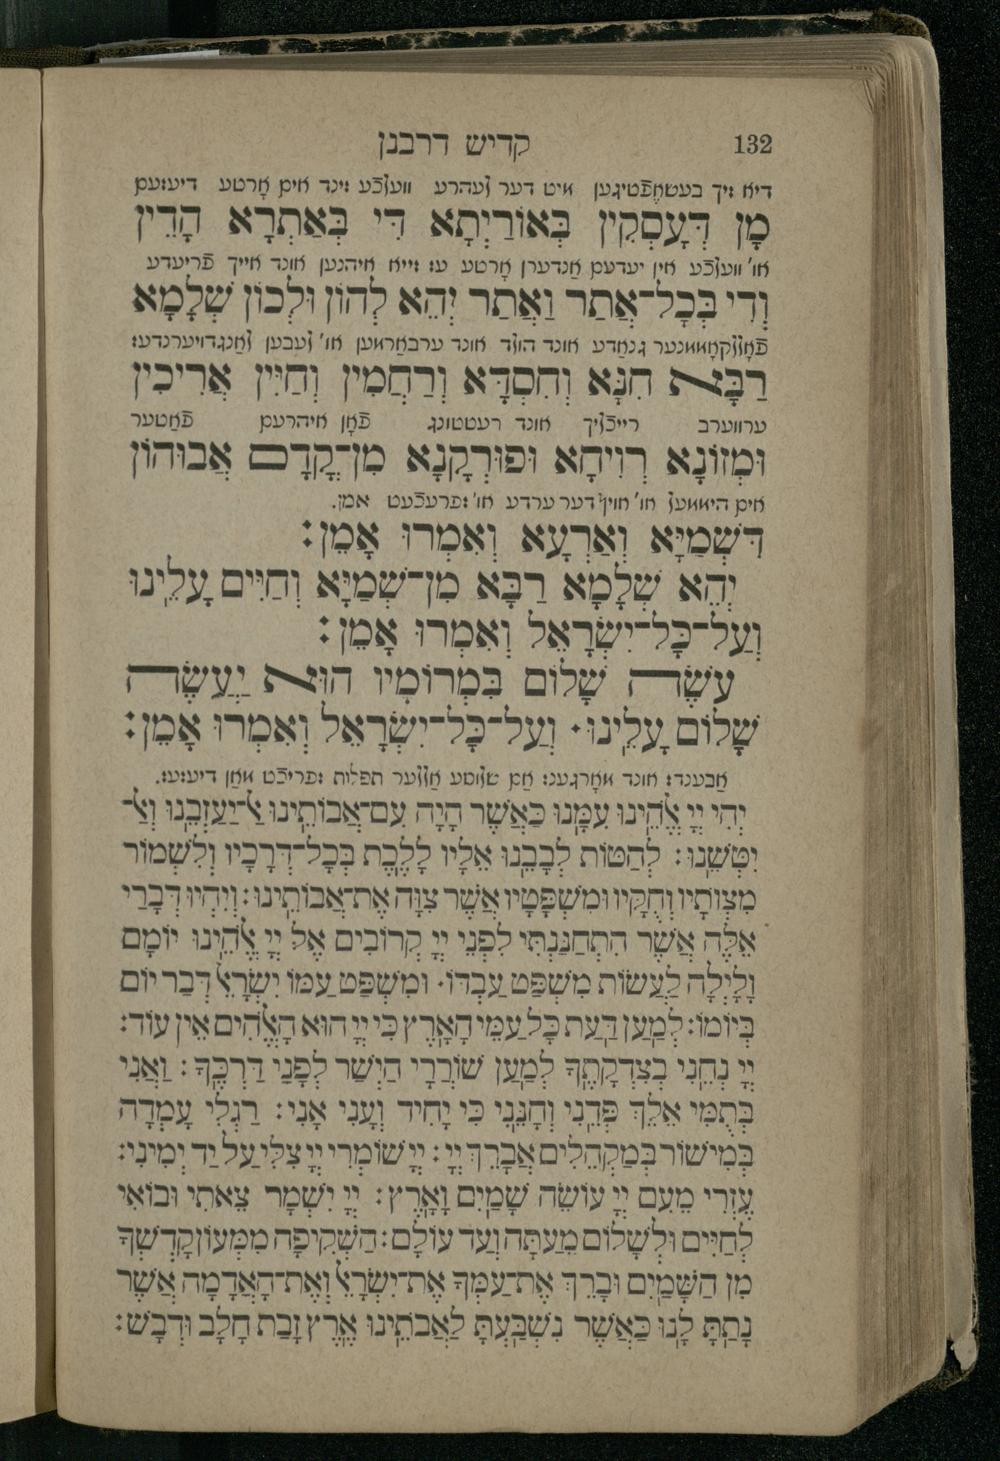 132 קדיש דרבנן
דיא זיך בעשעפֿטיגען מיט דער לעהרע וועלכֿע זינד אים אָרטע דיעזעם
מָן דְּעָסְקִין בְּאוֹרַיְתָא דִּי בְּאַתְרָא הָדֵין
או' וועלכֿע אין יעדעם אַנדערן אָרטע עז זייא איהנען אונד אייך פֿריעדע
וְדִי בְּכָל־אֲתַר וַאֲתַר יְהֵא לְהוֹן וּלְכוֹן שְׁלָמָא
פֿאָללקאָממנער גנאַדע אונד הולד אונד ערבאַרמען או' לעבען לאַנגדויערנדעז
רַבָּא חִנָּא וְחִסְדָּא וְרַחֲמִין וְחַיִּין אֲרִיכִין
ערווערב רייכֿליך אונד רעטטונג פֿאָן איהרעם פֿאַטער
וּמְזוֹנָא רְוִיחָא וּפוּרְקָנָא מִן־קֳדָם אֲבוּהוֹן
אים היממעל או' אויף דער ערדע או' שפרעכֿעט אמן.
דִּשְׁמַיָּא וְאַרְעָא וְאִמְרוּ אָמֵן:
יְהֵא שְׁלָמָא רַבָּא מִן־שְׁמַיָּא וְחַיִּים עָלֵינוּ
וְעַל־כָּל־יִשְׂרָאֵל וְאִמְרוּ אָמֵן:
עֹשֶׂה שָׁלוֹם בִּמְרוֹמָיו הוּא יַעֲשֶׂה
שָׁלוֹם עָלֵינוּ. וְעַל־כָּל־יִשְׂרָאֵל וְאִמְרוּ אָמֵן:
אַבענדז אונד מאָרגענז אַם שלוסע אללער תפלות שפריכֿט מאַן דיעזעז.
יְהִי יְיָ אֱלֹהֵינוּ עִמָּנוּ כַּאֲשֶׁר הָיָה עִם־אֲבוֹתֵינוּ אַל־יַעַזְבֵנוּ וְאַל־
יִטְּשֵׁנוּ: לְהַטּוֹת לְבָבֵנוּ אֵלָיו לָלֶכֶת בְּכָל־דְּרָכָיו וְלִשְׁמוֹר
מִצְוֹתָיו וְחֻקָּיו וּמִשְׁפָּטָיו אֲשֶׁר צִוָּה אֶת־אֲבוֹתֵינוּ: וְיִהְיוּ דְבָרַי
אֵלֶּה אֲשֶׁר הִתְחַנַּנְתִּי לִפְנֵי יְיָ קְרוֹבִים אֶל יְיָ אֱלֹהֵינוּ יוֹמָם
וָלָיְלָה לַעֲשׂוֹת מִשְׁפַּט עַבְדּוֹ. וּמִשְׁפַּט עַמּוֹ יִשְׂרָאֵל דְּבַר יוֹם
בְּיוֹמוֹ: לְמַעַן דַּעַת כָּל עַמֵּי הָאָרֶץ כִּי יְיָ הוּא הָאֱלֹהִים אֵין עוֹד:
יְיָ נְחֵנִי בְצִדְקָתֶךָ לְמַעַן שׁוֹרְרָי הַיְשַׁר לְפָנַי דַּרְכֶּךָ: וַאֲנִי
בְּתֻמִּי אֵלֵךְ פְּדֵנִי וְחָנֵּנִי כִּי יָחִיד וְעָנִי אָנִי: רַגְלִי עָמְדָה
בְמִישׁוֹר בְּמַקְהֵלִים אֲבָרֵךְ יְיָ: יְיָ שׁוֹמְרִי יְיָ צִלִּי עַל יַד יְמִינִי:
עֶזְרִי מֵעִם יְיָ עוֹשֵׂה שָׁמַיִם וָאָרֶץ: יְיָ יִשְׁמָר צֵאתִי וּבוֹאִי
לְחַיִּים וּלְשָׁלוֹם מֵעַתָּה וְעַד עוֹלָם: הַשְׁקִיפָה מִמְּעוֹן קָדְשְׁךָ
מִן הַשָּׁמַיִם וּבָרֵךְ אֶת־עַמְּךָ אֶת־יִשְׂרָאֵל וְאֶת־הָאֲדָמָה אֲשֶׁר
נָתַתָּ לָנוּ כַּאֲשֶׁר נִשְׁבַּעְתָּ לַאֲבֹתֵינוּ אֶרֶץ זָבַת חָלָב וּדְבָשׁ: